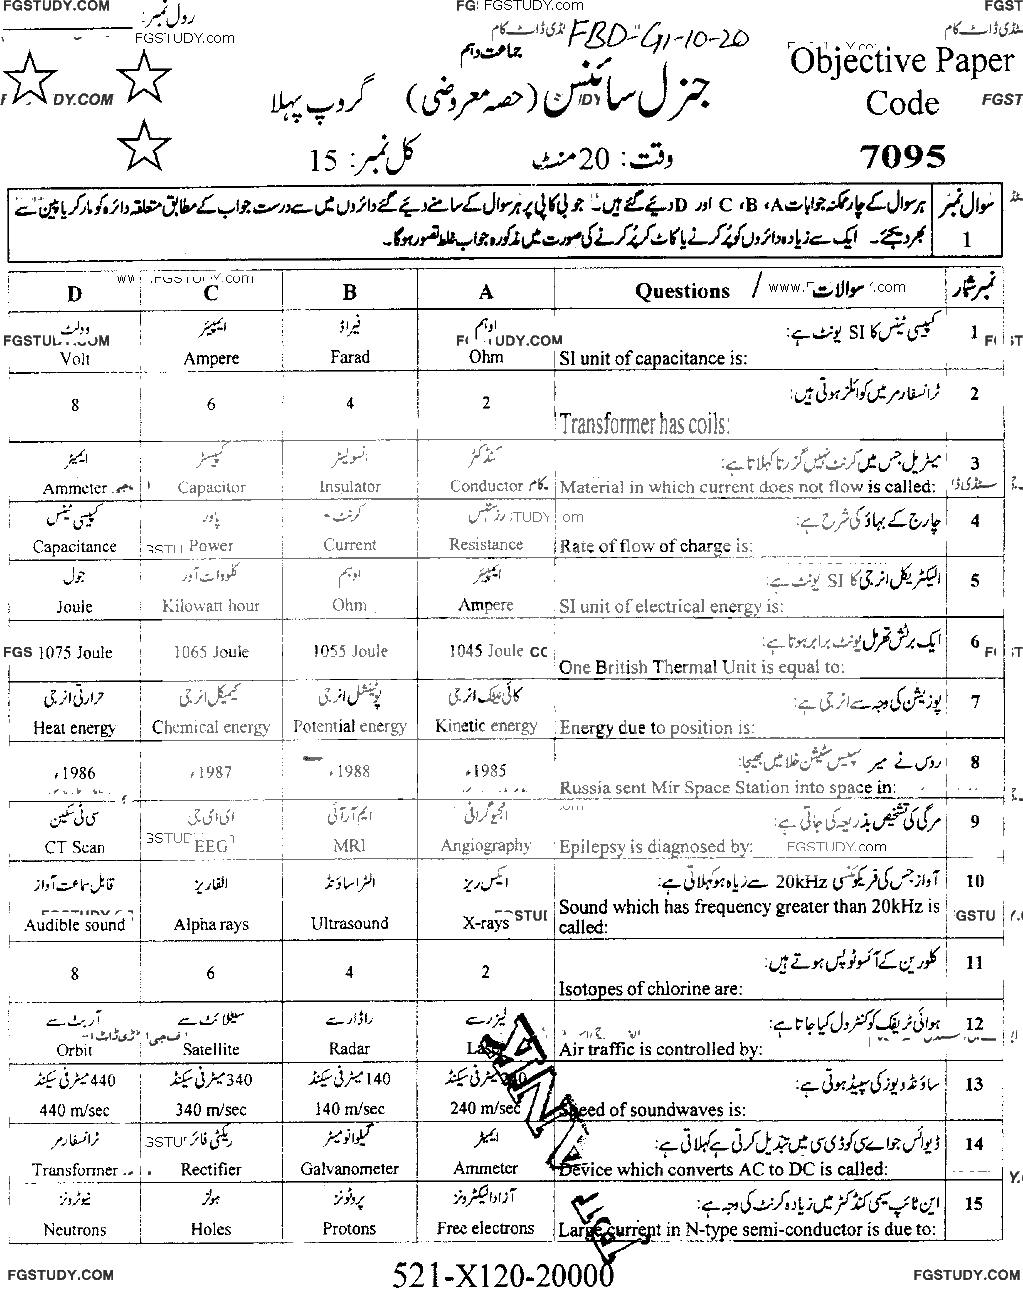 FGSTUDY.COM
رول نمبر:
FGSTUDY.com
FGSTUDY.com
FBD-G1-10-20
جماعت دہم
Objective Paper
جنرل سائنس (حصہ معروضی) گروپ پہلا
Code
وقت: 20 منٹ
کل نمبر: 15
7095
سوال نمبر 1
ہر سوال کے چار ممکنہ جوابات A، B، C اور D دیئے گئے ہیں۔ جوابی کاپی پر ہر سوال کے سامنے دیئے گئے دائروں میں سے درست جواب کے مطابق متعلقہ دائرہ کو مارکر یا پین سے
بھر دیجئے۔ ایک سے زیادہ دائروں کو پُر کرنے یا کاٹ کر پُر کرنے کی صورت میں مذکورہ جواب غلط تصور ہوگا۔
D C B A Questions / سوالات نمبر شمار
کپیسی ٹینس کا SI یونٹ ہے: 1
وولٹ ایمپیئر فیراڈ اوہم
Volt Ampere Farad Ohm SI unit of capacitance is:
ٹرانسفارمر میں کوائلز ہوتی ہیں: 2
8 6 4 2 Transformer has coils:
میٹریل جس میں کرنٹ نہیں گزرتا کہلاتا ہے: 3
ایمیٹر کپیسٹر انسولیٹر کنڈکٹر
Ammeter Capacitor Insulator Conductor Material in which current does not flow is called:
چارج کے بہاؤ کی شرح ہے: 4
کپیسی ٹینس پاور کرنٹ رزسٹنس
Capacitance Power Current Resistance Rate of flow of charge is:
الیکٹریکل انرجی کا SI یونٹ ہے: 5
جول کلوواٹ آور اوہم ایمپیئر
Joule Kilowatt hour Ohm Ampere SI unit of electrical energy is:
ایک برٹش تھرمل یونٹ برابر ہوتا ہے: 6
1075 Joule 1065 Joule 1055 Joule 1045 Joule One British Thermal Unit is equal to:
پوزیشن کی وجہ سے انرجی ہے: 7
حرارتی انرجی کیمیکل انرجی پوٹینشل انرجی کائی نیٹک انرجی
Heat energy Chemical energy Potential energy Kinetic energy Energy due to position is:
روس نے میر سپیس سٹیشن خلا میں بھیجا: 8
1986ء 1987ء 1988ء 1985ء
Russia sent Mir Space Station into space in:
مرگی کی تشخیص بذریعہ کی جاتی ہے: 9
سی ٹی سکین ای ای جی ایم آر آئی انجیوگرافی
CT Scan EEG MRI Angiography Epilepsy is diagnosed by: FGSTUDY.com
آواز جس کی فریکوئنسی 20kHz سے زیادہ ہو کہلاتی ہے: 10
قابل سماعت آواز الفا ریز الٹراساؤنڈ ایکس ریز
Audible sound Alpha rays Ultrasound X-rays Sound which has frequency greater than 20kHz is
called:
کلورین کے آئسوٹوپس ہوتے ہیں: 11
8 6 4 2 Isotopes of chlorine are:
ہوائی ٹریفک کو کنٹرول کیا جاتا ہے: 12
آربٹ سے سیٹلائٹ سے راڈار سے لیزر سے
Orbit Satellite Radar Laser Air traffic is controlled by:
ساؤنڈ ویوز کی سپیڈ ہوتی ہے: 13
440 میٹر فی سیکنڈ 340 میٹر فی سیکنڈ 140 میٹر فی سیکنڈ 240 میٹر فی سیکنڈ
440 m/sec 340 m/sec 140 m/sec 240 m/sec Speed of soundwaves is:
ڈیوائس جو اے سی کو ڈی سی میں تبدیل کرتی ہے کہلاتی ہے: 14
ٹرانسفارمر ریکٹی فائر گیلوانومیٹر ایمیٹر
Transformer Rectifier Galvanometer Ammeter Device which converts AC to DC is called:
این ٹائپ سیمی کنڈکٹر میں زیادہ کرنٹ کی وجہ ہے: 15
نیوٹرونز ہولز پروٹونز آزاد الیکٹرونز
Neutrons Holes Protons Free electrons Large current in N-type semi-conductor is due to:
521-X120-20000
FGSTUDY.COM
FGSTUDY.COM